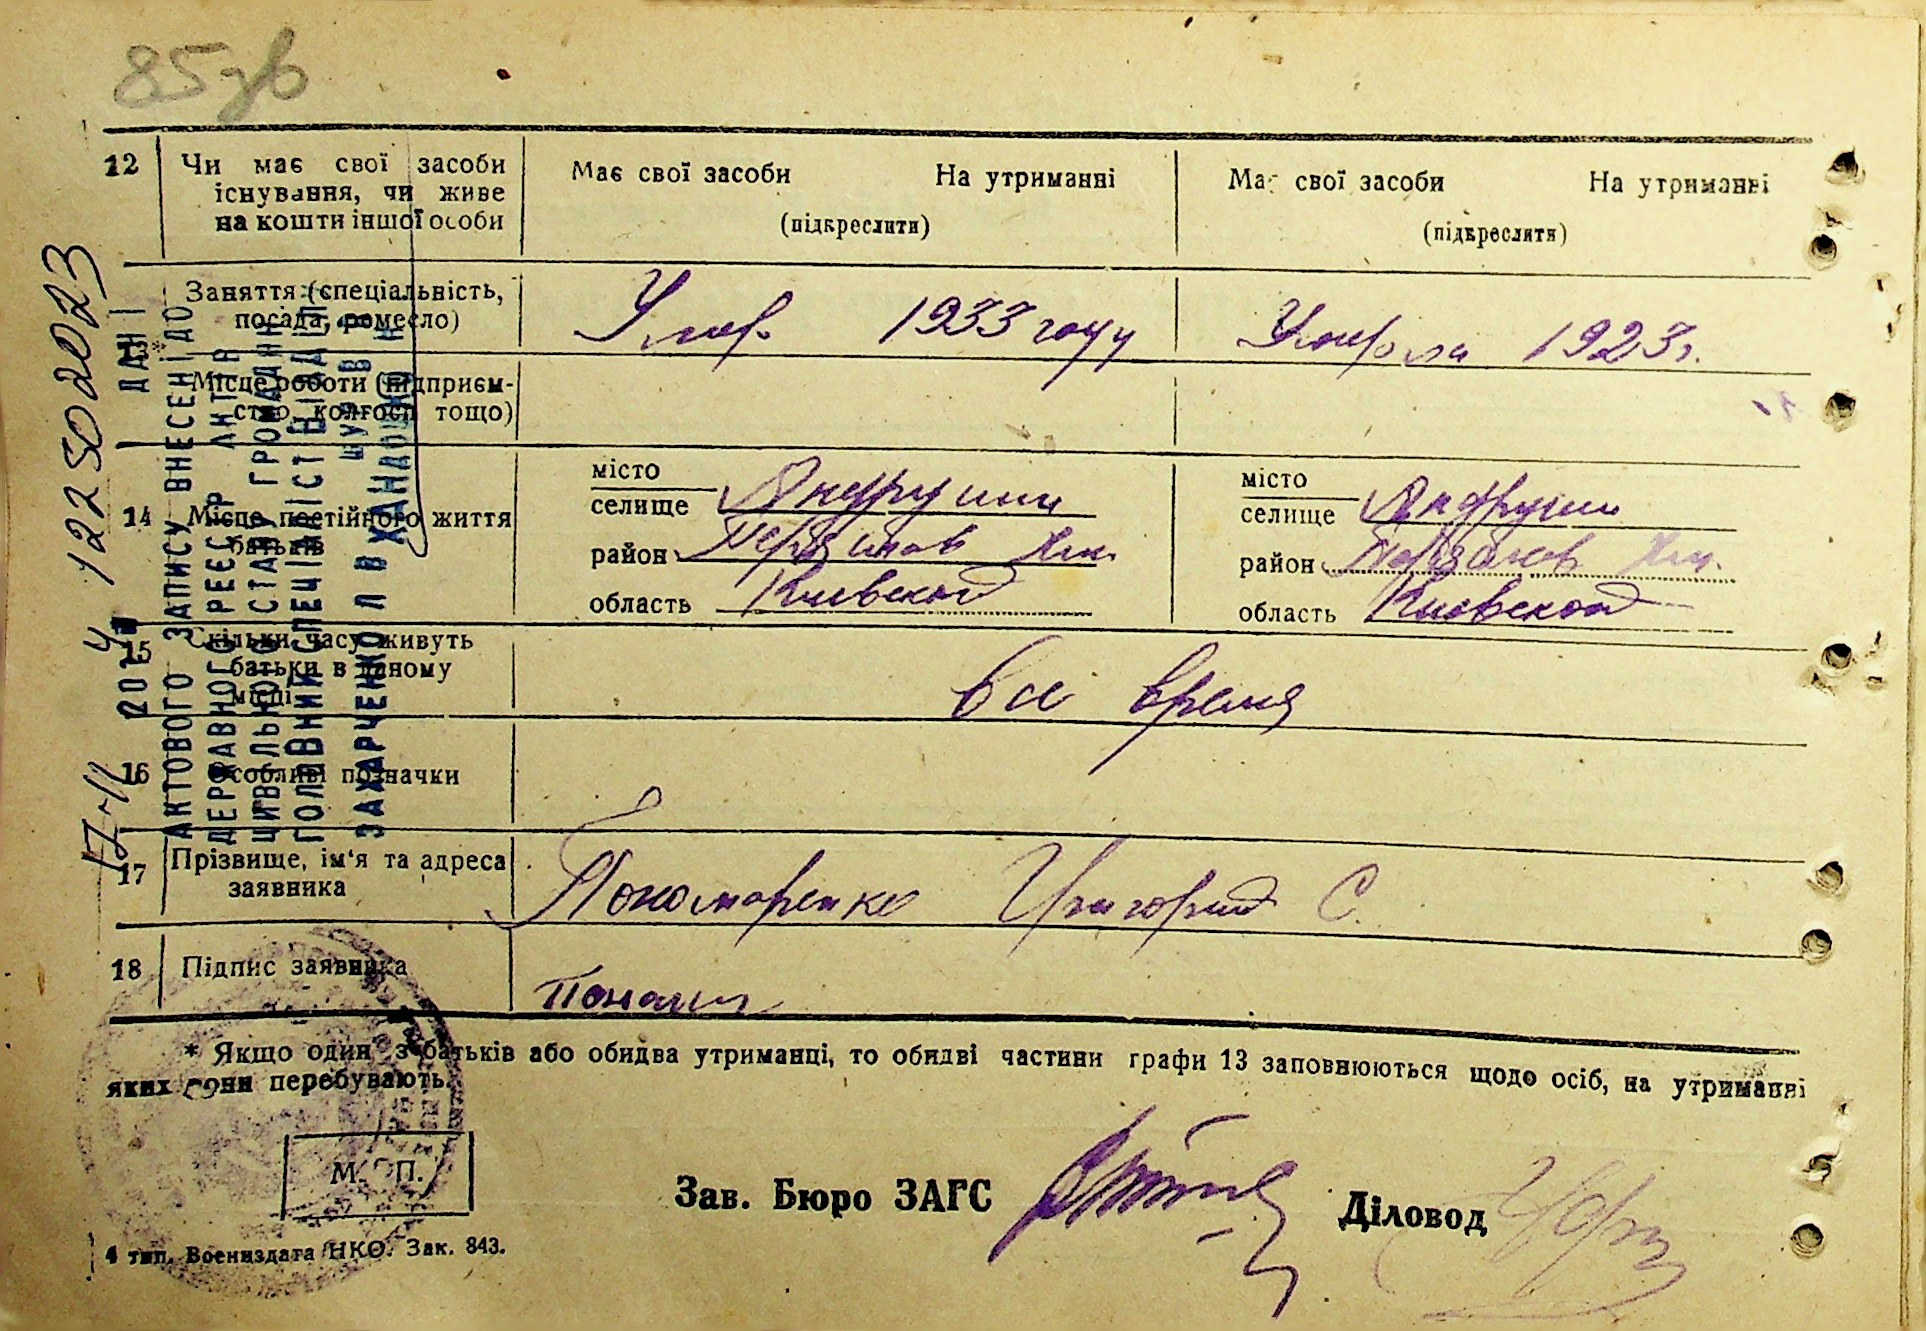 85зв
12 Чи має свої засоби Має свої засоби На утриманні Має свої засоби На утриманні
існування, чи живе
на кошти іншої особи (підкреслити) (підкреслити)
Заняття (спеціальність,
посада, ремесло) Умер 1933 году Умерла 1923 г.
Місце роботи (підприєм-
ство, колгосп тощо)
14 Місце постійного життя
батьків
місто
селище Андруши
район
область Киевской
місто
селище Андруши
район
область Киевской
15 Скільки часу живуть
батьки в даному
місці
все время
16 Особливі позначки
17 Прізвище, ім'я та адреса
заявника
Пономаренко Григорий С.
18 Підпис заявника
* Якщо один з батьків або обидва утриманці, то обидві частини графи 13 заповнюються щодо осіб, на утриманні
яких вони перебувають.
М. П.
Зав. Бюро ЗАГС Діловод
4 тип. Воениздата НКО. Зак. 843.
122502023
ДАНІ
АКТОВОГО ЗАПИСУ ВНЕСЕНІ ДО
ДЕРЖАВНОГО РЕЄСТР АКТІВ
ЦИВІЛЬНОГО СТАНУ ГРОМАДЯН
ГОЛОВНИЙ СПЕЦІАЛІСТ ВІДДІЛ
ЗАХАРЧЕНКО Л В